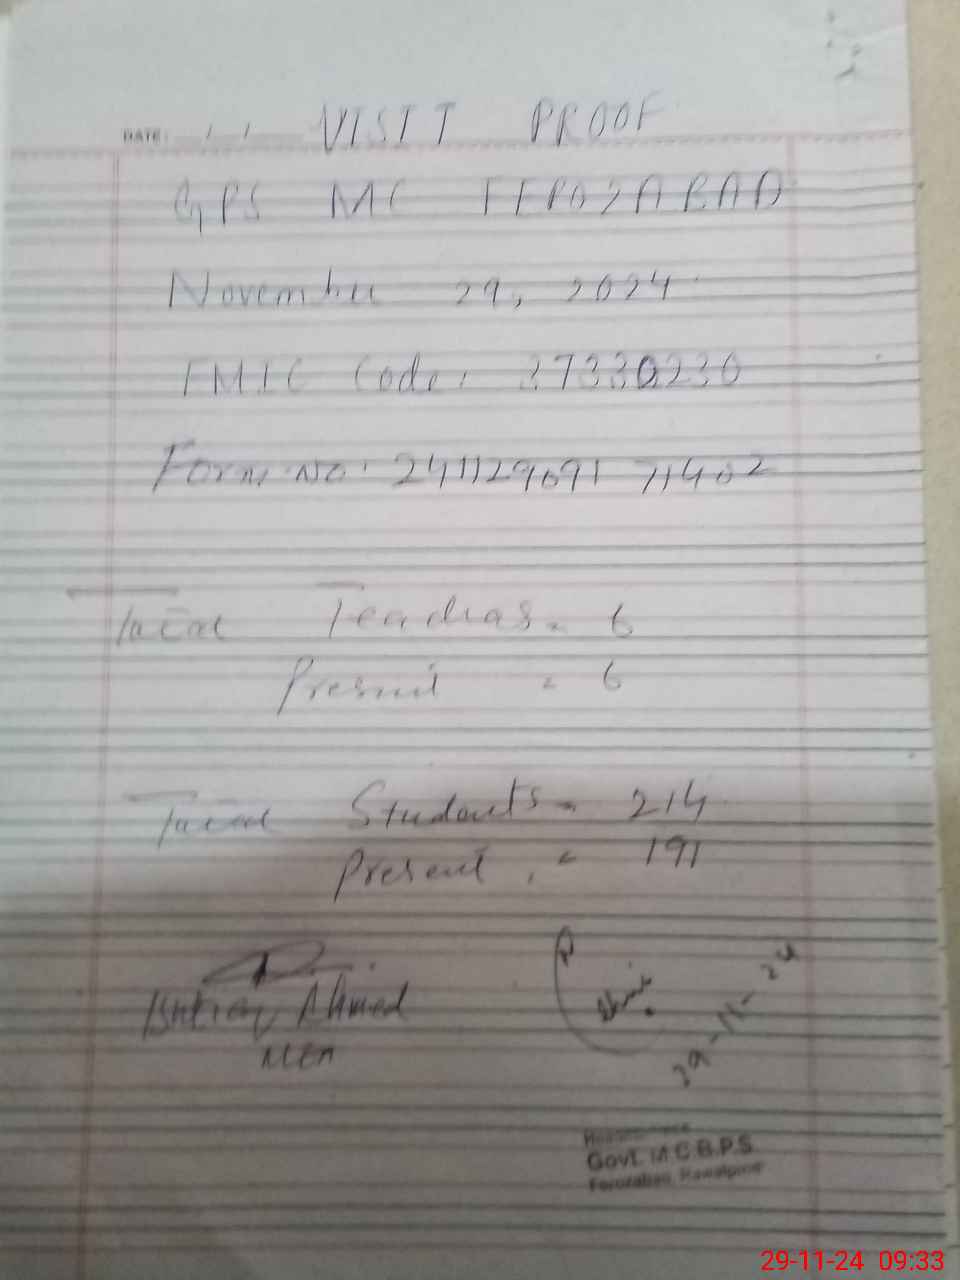 DATE: / /
VISIT PROOF
GPS MC FEROZABAD
November 29, 2024
EMIC Code: 37330230
Form No: 241129091 71402
Total Teachers = 6
Present = 6
Total Students = 214
Present = 191
Ishtiaq Ahmed
MEA
29-11-24
Govt. M.C.B.P.S
Ferozabad, Rawalpindi
29-11-24 09:33